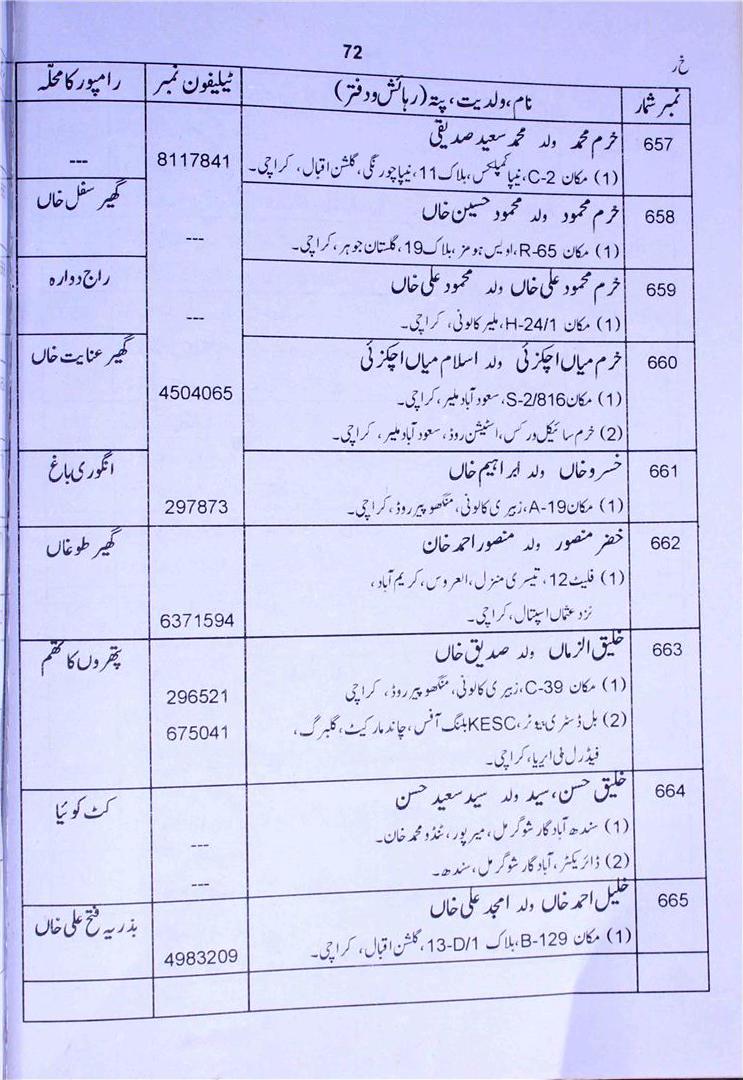 72
خ ر
نمبر شمار	نام، ولدیت، پتہ (رہائش و دفتر)	ٹیلیفون نمبر	رامپور کا محلّہ
657	خرم محمد ولد محمد سعید صدیقی
(1) مکان C-2، نیپا کمپلکس، بلاک 11، نیپا چورنگی، گلشن اقبال، کراچی۔	8117841	---
658	خرم محمود ولد محمود حسین خاں	گھیر سفل خاں
(1) مکان R-65، اویس ہومز، بلاک 19، گلستان جوہر، کراچی۔	---
659	خرم محمود علی خاں ولد محمود علی خاں	راج دوارہ
(1) مکان H-24/1، ملیر کالونی، کراچی۔	---
660	خرم میاں اچکزئی ولد اسلام میاں اچکزئی	گھیر عنایت خاں
(1) مکان S-2/816، سعود آباد ملیر، کراچی۔	4504065
(2) خرم سائیکل ورکس، اسٹیشن روڈ، سعود آباد ملیر، کراچی۔
661	خسرو خاں ولد ابراہیم خاں	انگوری باغ
(1) مکان A-19، زبیری کالونی، منگھو پیر روڈ، کراچی۔	297873
662	خضر منصور ولد منصور احمد خان	گھیر طوغاں
(1) فلیٹ 12، تیسری منزل، العروس، کریم آباد،
نزد عثمان اسپتال، کراچی۔	6371594
663	خلیق الزماں ولد صدیق خاں	پتھروں کا کھم
(1) مکان C-39، زبیری کالونی، منگھو پیر روڈ، کراچی	296521
(2) بل ڈسٹری بیوٹر، KESC بلنگ آفس، چاند مارکیٹ، گلبرگ،	675041
فیڈرل بی ایریا، کراچی۔
664	خلیق حسن، سید ولد سید سعید حسن	کٹ کوئیا
(1) سندھ آبادگار شوگر مل، میر پور، ٹنڈو محمد خان۔	---
(2) ڈائریکٹر، آبادگار شوگر مل، سندھ۔	---
665	خلیل احمد خاں ولد امجد علی خاں	بذریہ فتح علی خاں
(1) مکان B-129، بلاک 13-D/1، گلشن اقبال، کراچی۔	4983209